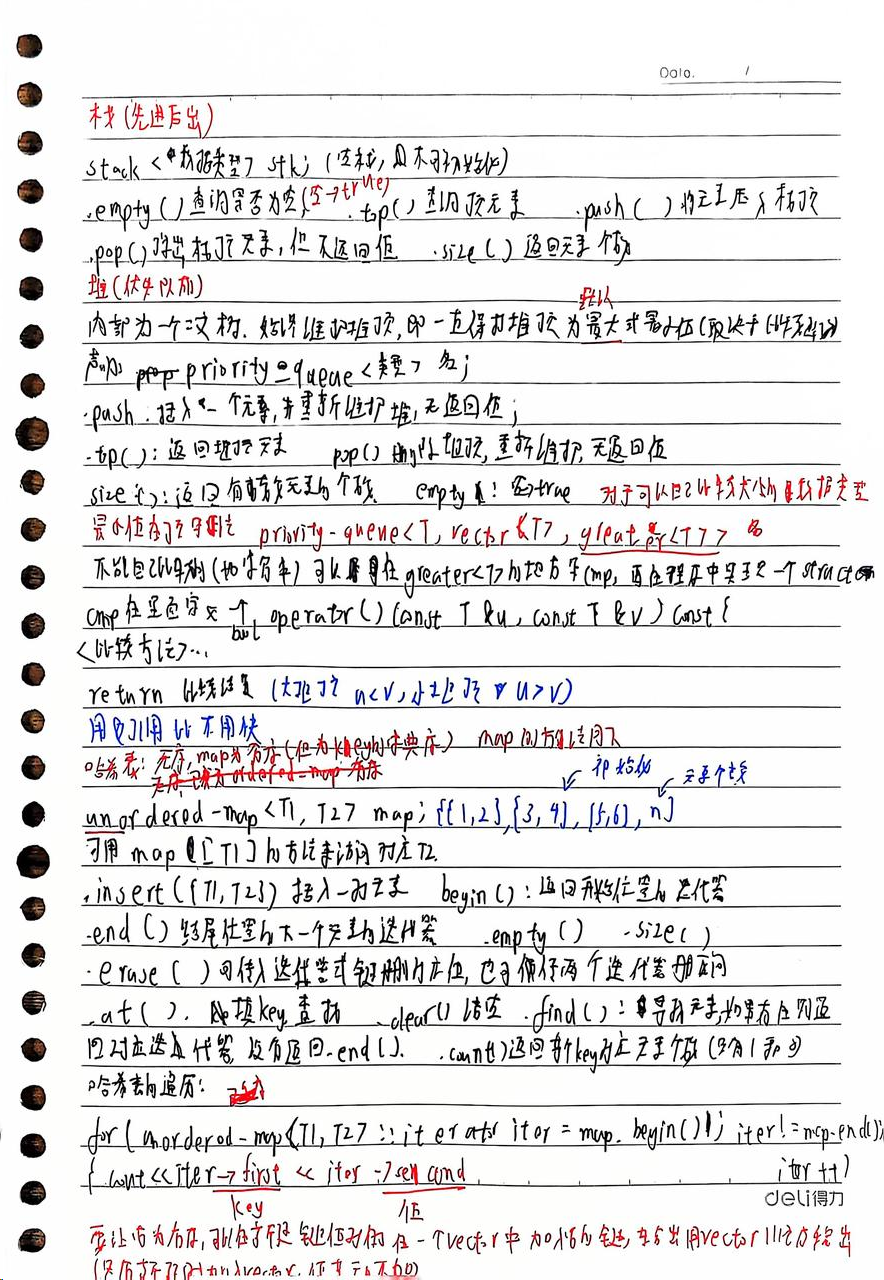 Date. /
栈(先进后出)
stack <数据类型> stk; (空栈, 且不可初始化)
.empty() 查询是否为空(空→true) .top() 查询顶元素 .push() 将元素压入栈顶
.pop() 弹出栈顶元素, 但不返回值 .size() 返回元素个数
堆(优先队列)
默认
内部为一个二叉树. 始终维护堆顶, 即一直保持堆顶为最大或最小值(取决于
声明 priority_queue<类型> 名;
.push 插入一个元素, 并重新维护堆, 无返回值;
.top(): 返回堆顶元素 pop() 删除堆顶, 重新维护, 无返回值
size(): 返回有多少元素的个数 empty: 空→true 对于可以自己比较大小的数据类型
最小值在顶 priority-queue<T, vector<T>, greater<T>> 名
不能自己比较的(如字符串) 可以在greater<T>的地方写cmp, 再在程序中定义一个struct
cmp 在里面定义 bool operator() (const T &u, const T &v) const {
<比较方法>...
return 比较结果 (大堆顶 u<v, 小堆顶 u>v)
用引用比不用快
哈希表: 无序, map为有序(但为key的字典序) map 的方法同下
初始化 元素个数
unordered-map<T1, T2> map; {{1,2},{3,4},{5,6}, n}
可用 map [T1] 的方法来访问对应T2.
.insert({T1,T2}) 插入一对元素 begin(): 返回开始位置的迭代器
.end() 结尾位置的下一个元素的迭代器 .empty() .size()
.erase() 可传入迭代器或键删对应值, 也可传两个迭代器删区间
.at(). 填key 查找 .clear() 清空 .find(): 寻找元素, 如果存在则返
回对应迭代器 没有返回.end(). .count() 返回key对应元素个数 (只有1和0)
哈希表的遍历:
for( unordered-map<T1, T2> :: iterator iter = map. begin(); iter!=map.end();
{ cout<<iter→first << iter→second iter++)
key 值
deli得力